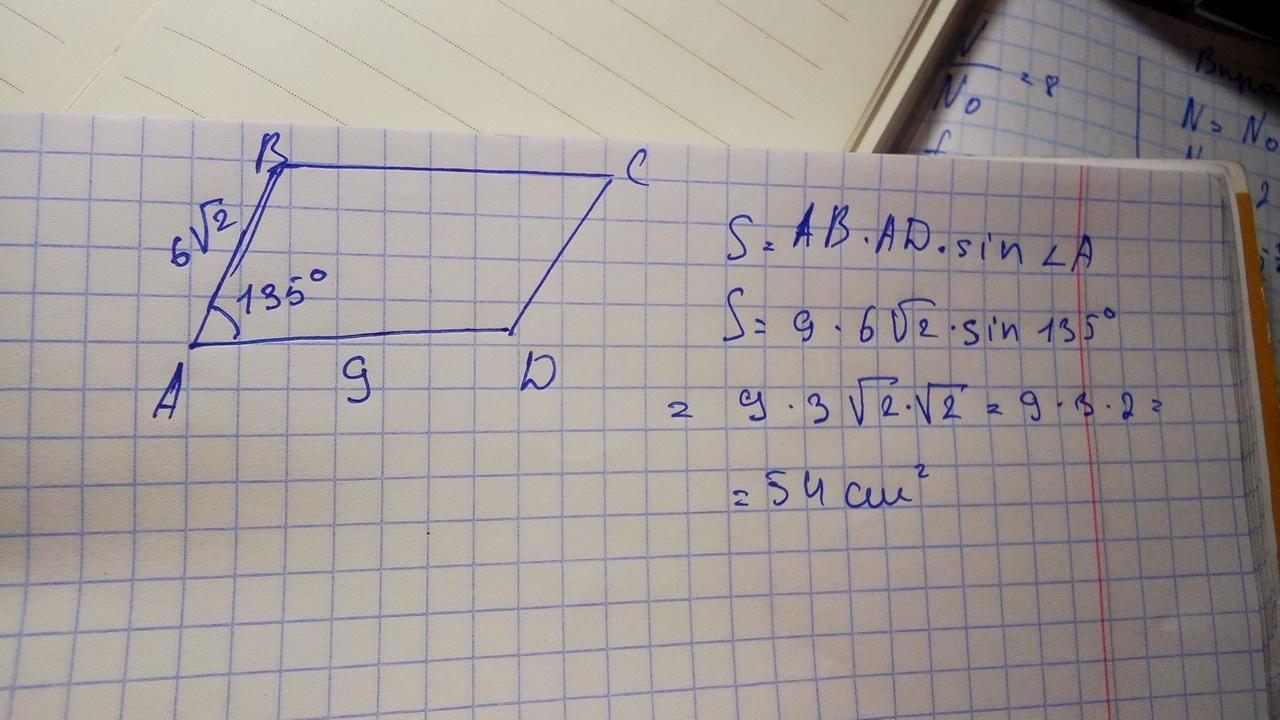 B
C
6√2
135°
A
9
D
S = AB · AD · sin ∠A
S = 9 · 6√2 · sin 135°
= 9 · 3 √2 · √2 = 9 · 3 · 2 =
= 54 см²
N₀
= 8
N = N₀
2